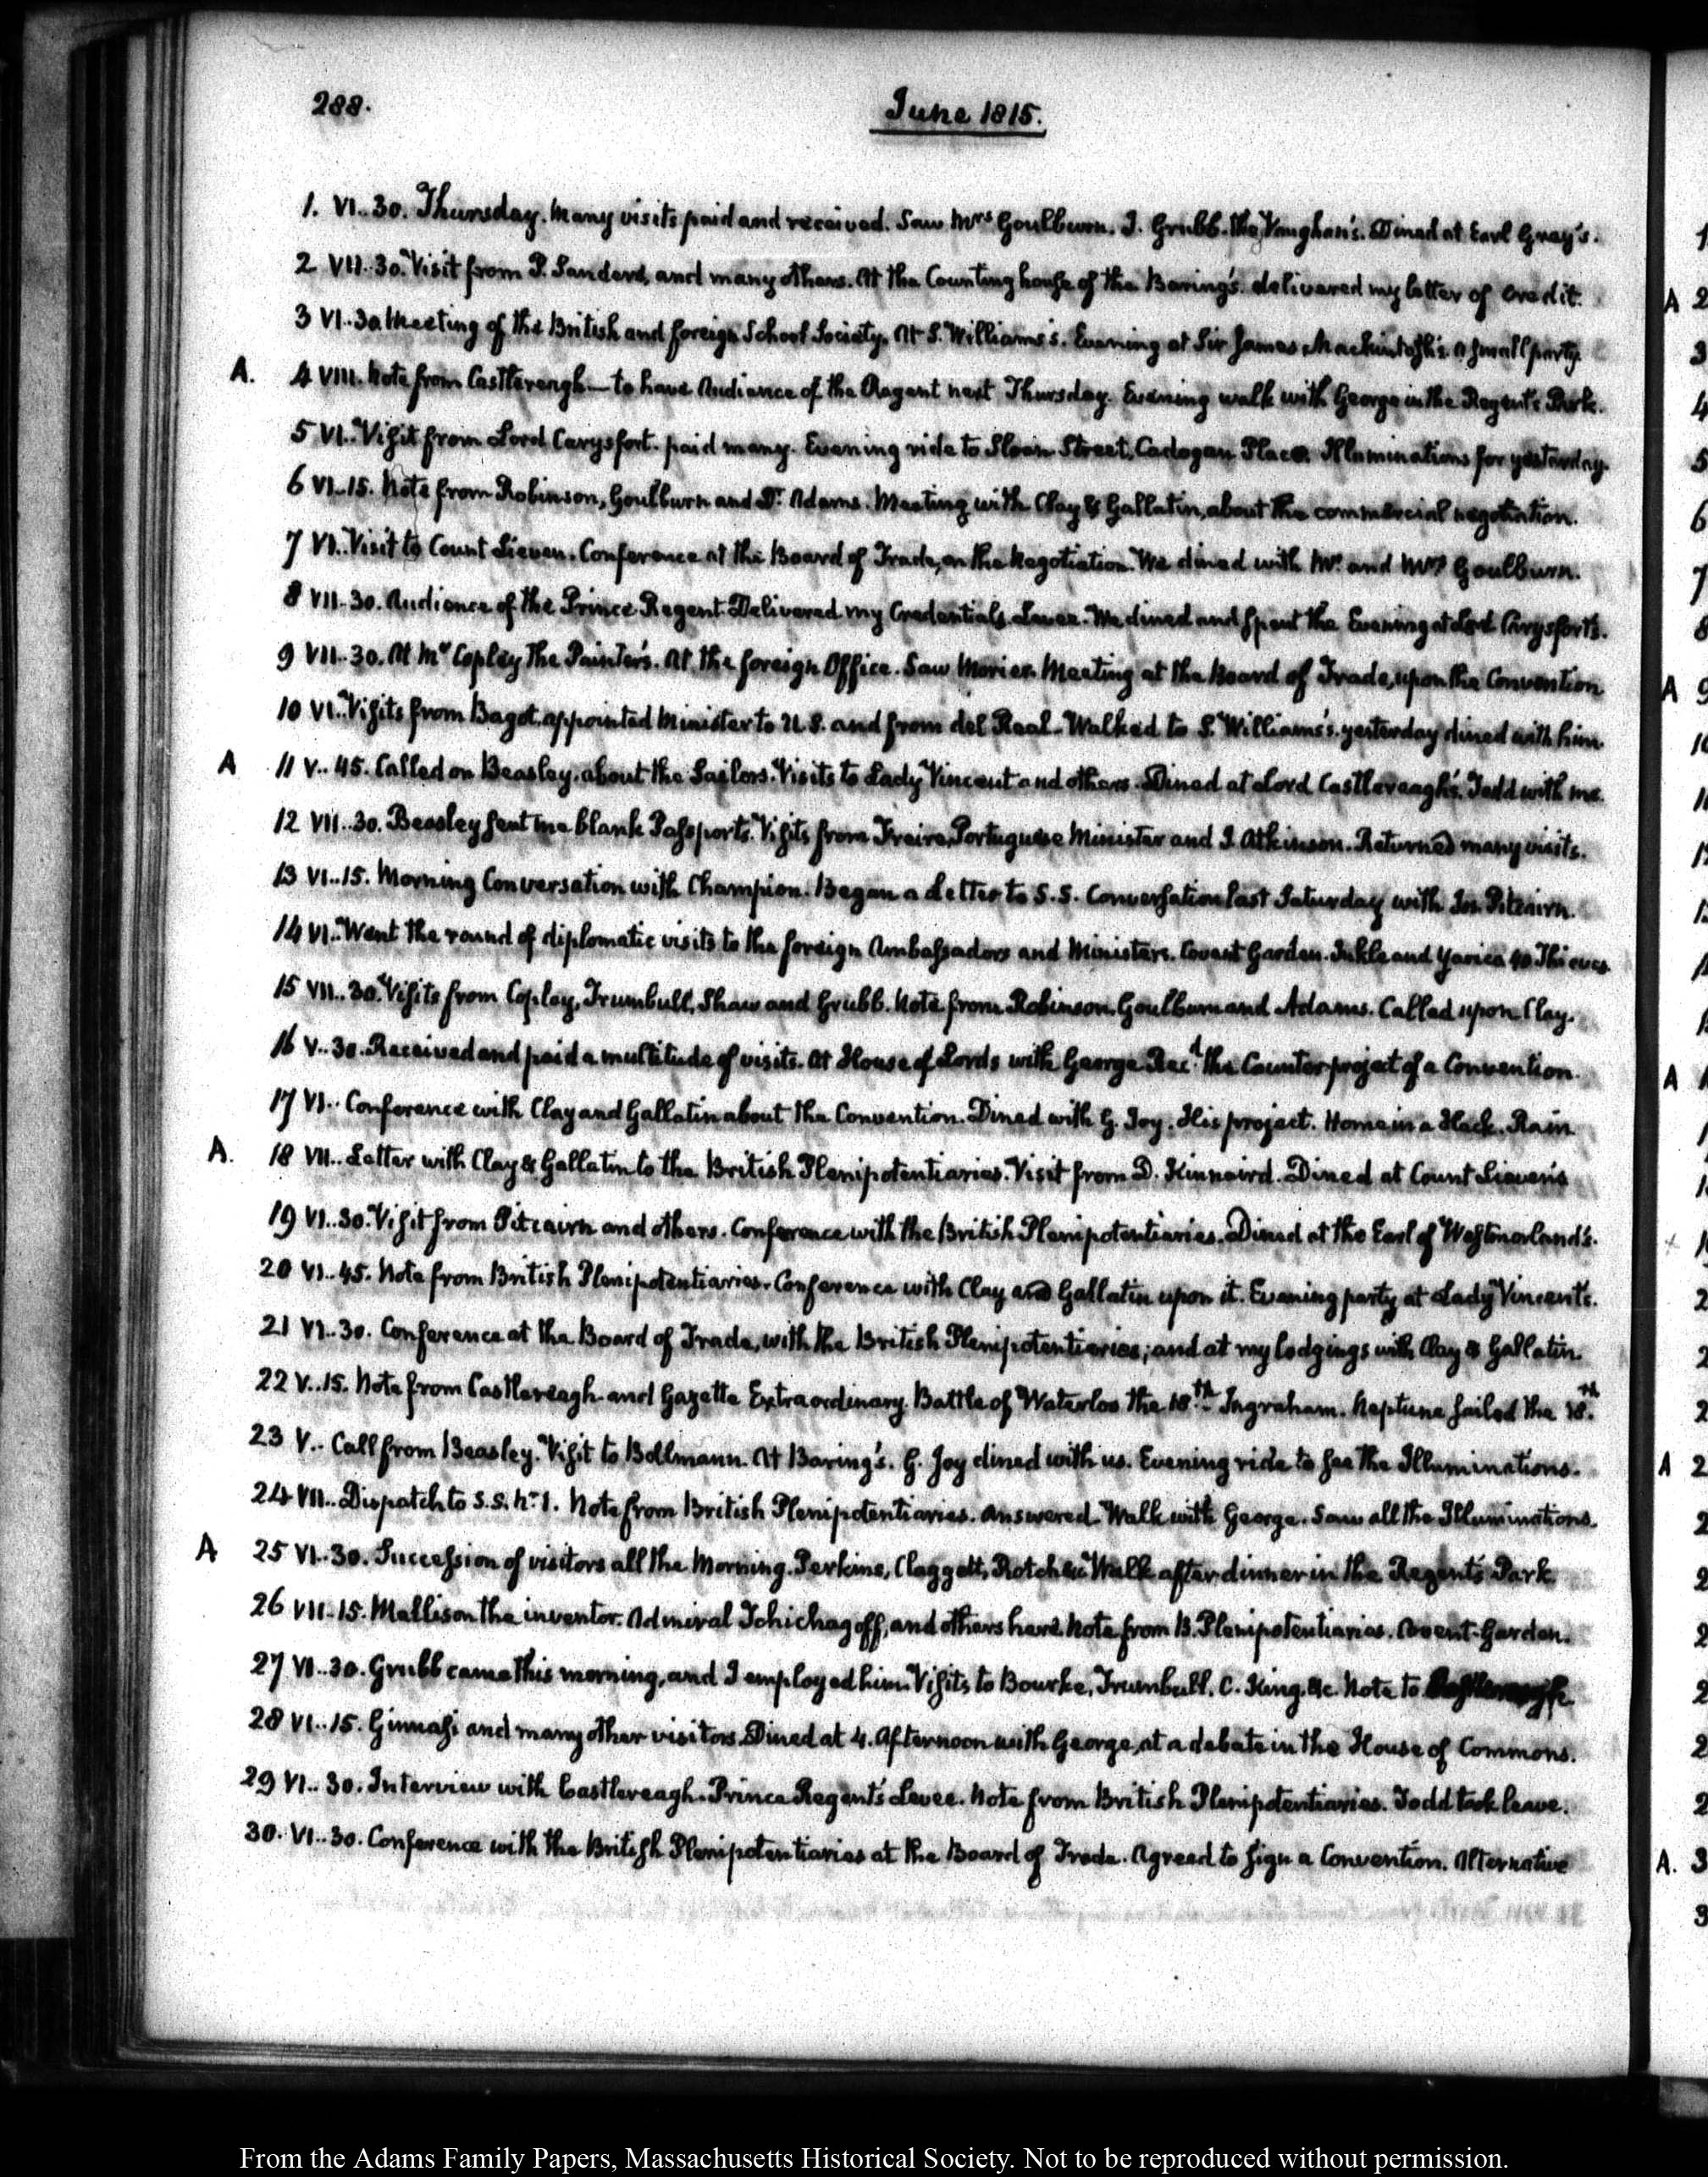 288.
June 1815.
1. VI..30. Thursday. Many visits paid and received. Saw Mrs Goulburn. I. Grubb. the Vaughan's. Dined at Earl Grey's.
2 VII..30. Visit from P. Sanders, and many others. At the Counting house of the Baring's. delivered my letter of Credit.
3 VI..30. Meeting of the British and foreign School Society. At S. Williams's. Evening at Sir James Mackintosh's. a small party.
A. 4 VIII. Note from Castlereagh—to have Audience of the Regent next Thursday. Evening walk with George in the Regent's Park.
5 VI.. Visit from Lord Carysfort. paid many. Evening ride to Sloan Street, Cadogan Place. Illuminations for yesterday.
6 VI..15. Note from Robinson, Goulburn and Dr. Adams. Meeting with Clay & Gallatin, about the commercial negotiation.
7 VI.. Visit to Count Lieven. Conference at the Board of Trade, on the Negotiation. We dined with Mr. and Mrs Goulburn.
8 VII..30. Audience of the Prince Regent. Delivered my Credentials. Levee. We dined and spent the Evening at Lord Carysfort's.
9 VII..30. At Mr Copley the Painter's. At the foreign Office. Saw Morier. Meeting at the Board of Trade, upon the Convention
10 VI.. Visits from Bagot. appointed Minister to U.S. and from del Real. Walked to S. Williams's. yesterday dined with him.
A 11 V..45. Called on Beasley. about the Sailors. Visits to Lady Vincent and others. Dined at Lord Castlereagh's. Todd with me.
12 VII..30. Beasley sent me blank Passports. Visits from Freire, Portuguese Minister and I. Atkinson. Returned many visits.
13 VI..15. Morning Conversation with Champion. Began a Letter to S.S. Conversation last Saturday with Jos. Pitcairn.
14 VI.. Went the round of diplomatic visits to the foreign Ambassadors and Ministers. Covent Garden. Inkle and Yarico. 40 Thieves.
15 VII..30. Visits from Copley, Trumbull, Shaw and Grubb. Note from Robinson, Goulburn and Adams. Called upon Clay.
16 V..30. Received and paid a multitude of visits. At House of Lords with George. Recd. the Counter project of a Convention.
17 VI.. Conference with Clay and Gallatin about the Convention. Dined with G. Joy. His project. Home in a Hack. Rain
A. 18 VII.. Letter with Clay & Gallatin to the British Plenipotentiaries. Visit from D. Kinnaird. Dined at Count Lieven's
19 VI..30. Visit from Pitcairn and others. Conference with the British Plenipotentiaries. Dined at the Earl of Westmorland's.
20 VI..45. Note from British Plenipotentiaries. Conference with Clay and Gallatin upon it. Evening party at Lady Vincent's.
21 VI..30. Conference at the Board of Trade, with the British Plenipotentiaries; and at my lodgings with Clay & Gallatin.
22 V..15. Note from Castlereagh and Gazette Extraordinary. Battle of Waterloo the 18th. Ingraham. Neptune sailed the 18th.
23 V.. Call from Beasley. Visit to Bollmann. At Baring's. G. Joy dined with us. Evening ride to see the Illuminations.
24 VII.. Dispatch to S.S. Nr. 1. Note from British Plenipotentiaries. answered. Walk with George. Saw all the Illuminations.
A 25 VI..30. Succession of visitors all the Morning. Perkins, Claggett, Rotch &c. Walk after dinner in the Regent's Park.
26 VII..15. Mallison the inventor. Admiral Tchichagoff, and others here. Note from B. Plenipotentiaries. Covent-Garden.
27 VI..30. Grubb came this morning, and I employed him. Visits to Bourke, Trumbull, C. King, &c. Note to Castlereagh
28 VI..15. Ginnasi and many other visitors. Dined at 4. Afternoon with George, at a debate in the House of Commons.
29 VI..30. Interview with Castlereagh. Prince Regent's Levee. Note from British Plenipotentiaries. Todd took leave.
30. VI..30. Conference with the British Plenipotentiaries at the Board of Trade. Agreed to sign a Convention. Alternative
From the Adams Family Papers, Massachusetts Historical Society. Not to be reproduced without permission.